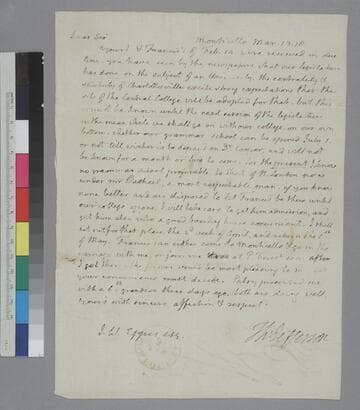 Dear Sir Monticello Mar. 17. 18.
Yours & Francis's of Feb. 14. were received in due
time. you have seen by the newspapers what our legislature
has done on the subject of an University. the centrality &
salubrity of Charlottesville excite strong expectations that the
site of the Central College will be adopted for that. but this
will be known until the next session of the legislature.
in the mean while we shall go on with our college on our own
bottom. whether our grammar school can be opened July 1.
or not till winter is to depend on Dr. Cooper, and will not
be known for a month or two to come. for the present I know
no grammar school preferable to that of N. London now
under mr Dashiell, a most respectable man. if you know
none better and are disposed to let Francis be there until
our college opens, I will take care to get him admission, and
get him also into a good boarding house convenient. I shall
set out for that place the 2d. week of April, and return the 1st.
of May. Francis can either come to Monticello & go in the
carriage with me, or join me at P. Forest soon after
I get there. the former would be most pleasing to me
your convenience must decide. Patsy presented me
with a 6th. grandson three days ago. both are doing well
yours with sincere affection & respect.
Th: Jefferson
J. W. Eppes esq.